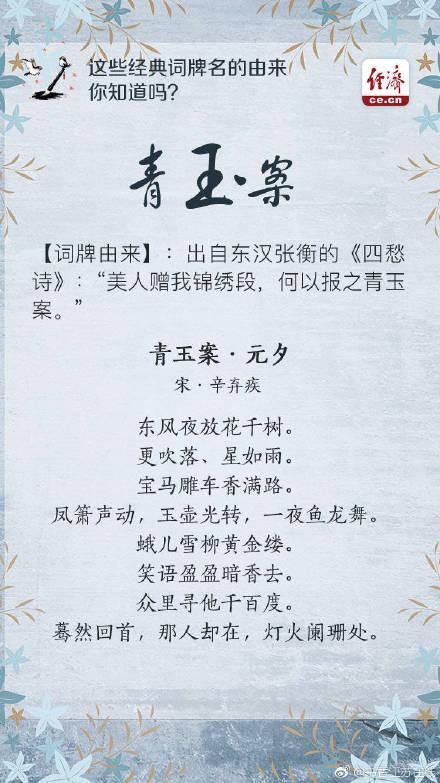 这些经典词牌名的由来
你知道吗？
经济
ce.cn
青玉案
【词牌由来】：出自东汉张衡的《四愁
诗》：“美人赠我锦绣段，何以报之青玉
案。”
青玉案·元夕
宋·辛弃疾
东风夜放花千树。
更吹落、星如雨。
宝马雕车香满路。
凤箫声动，玉壶光转，一夜鱼龙舞。
蛾儿雪柳黄金缕。
笑语盈盈暗香去。
众里寻他千百度。
蓦然回首，那人却在，灯火阑珊处。